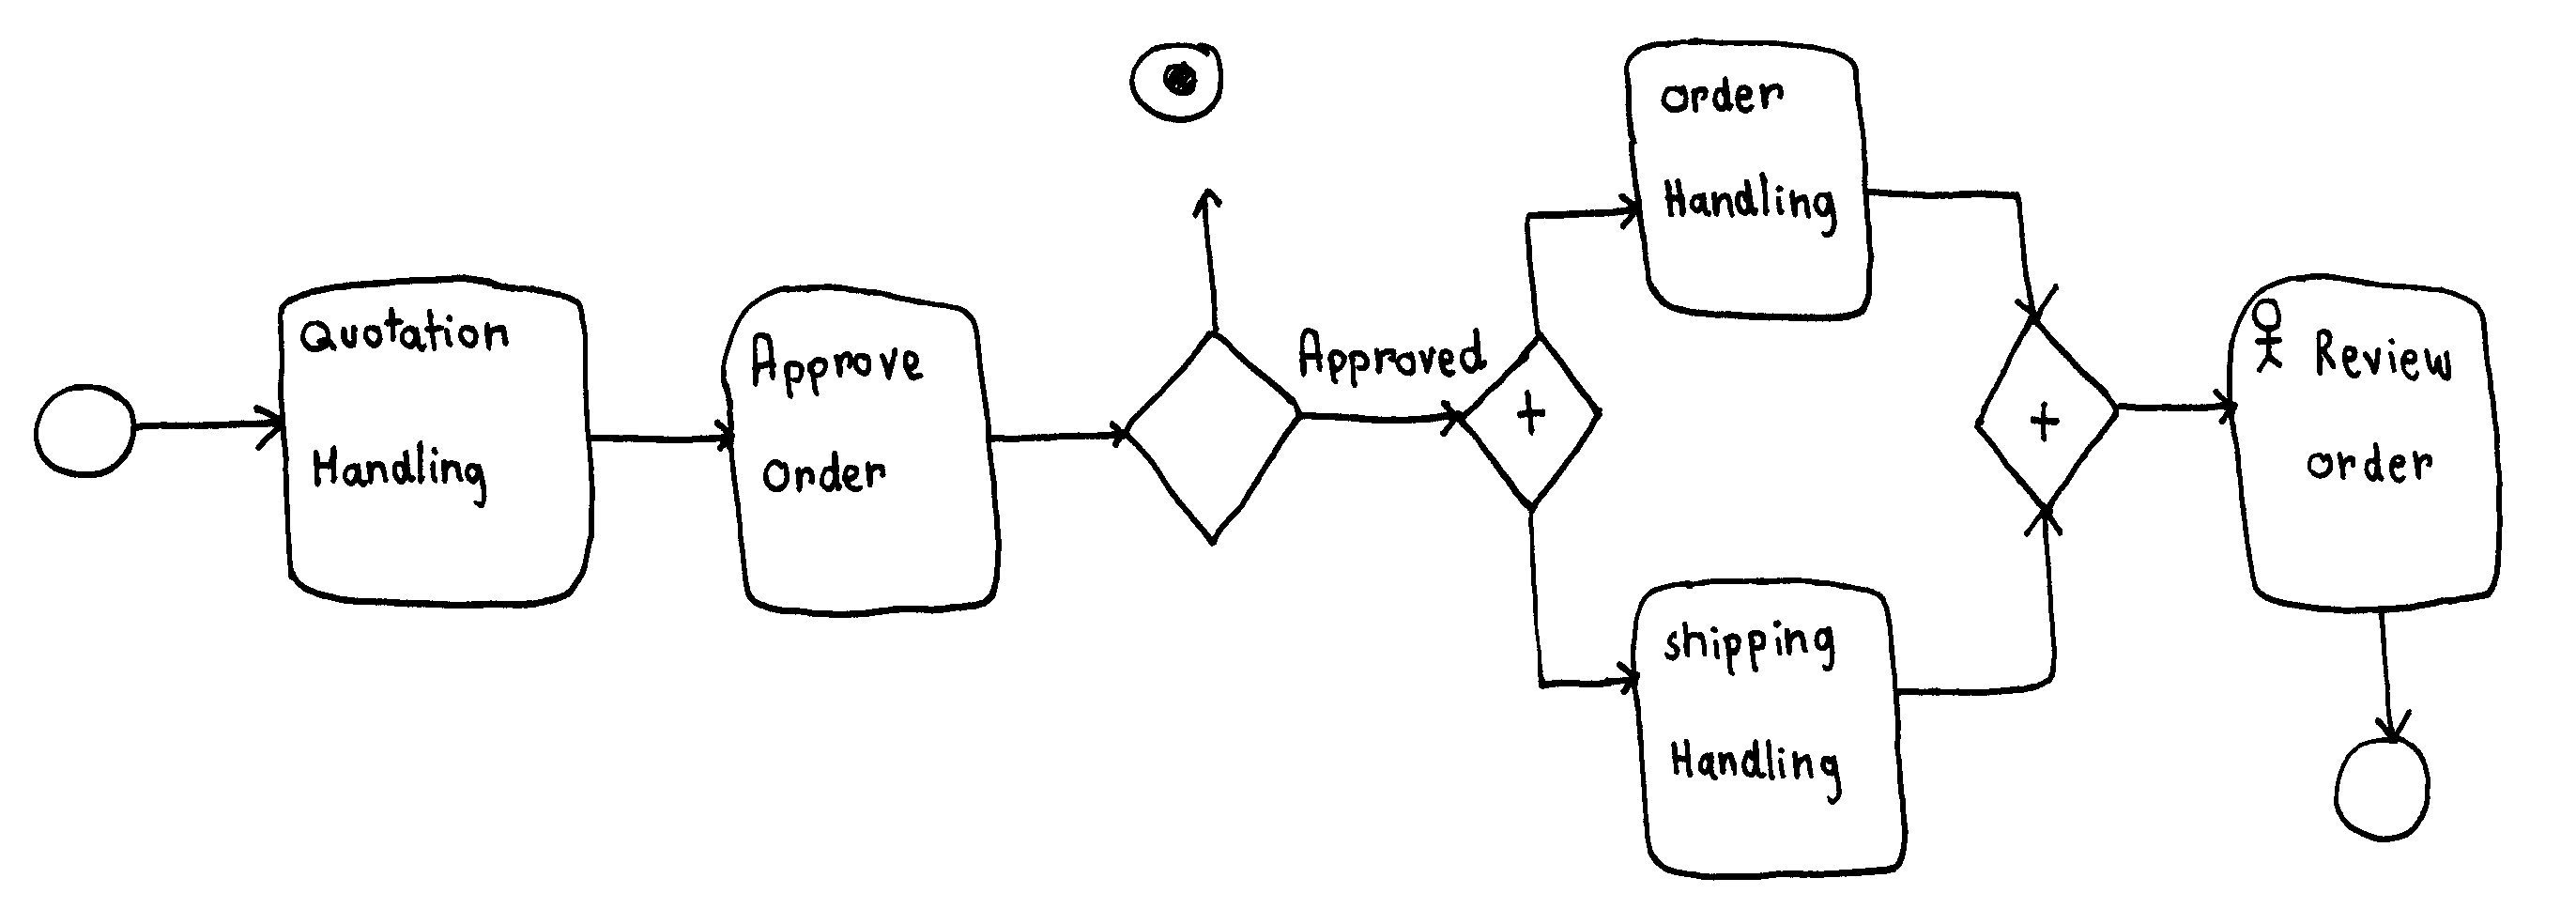 Quotation
Handling
Approve
Order
Approved
+
order
Handling
shipping
Handling
+
Review
order